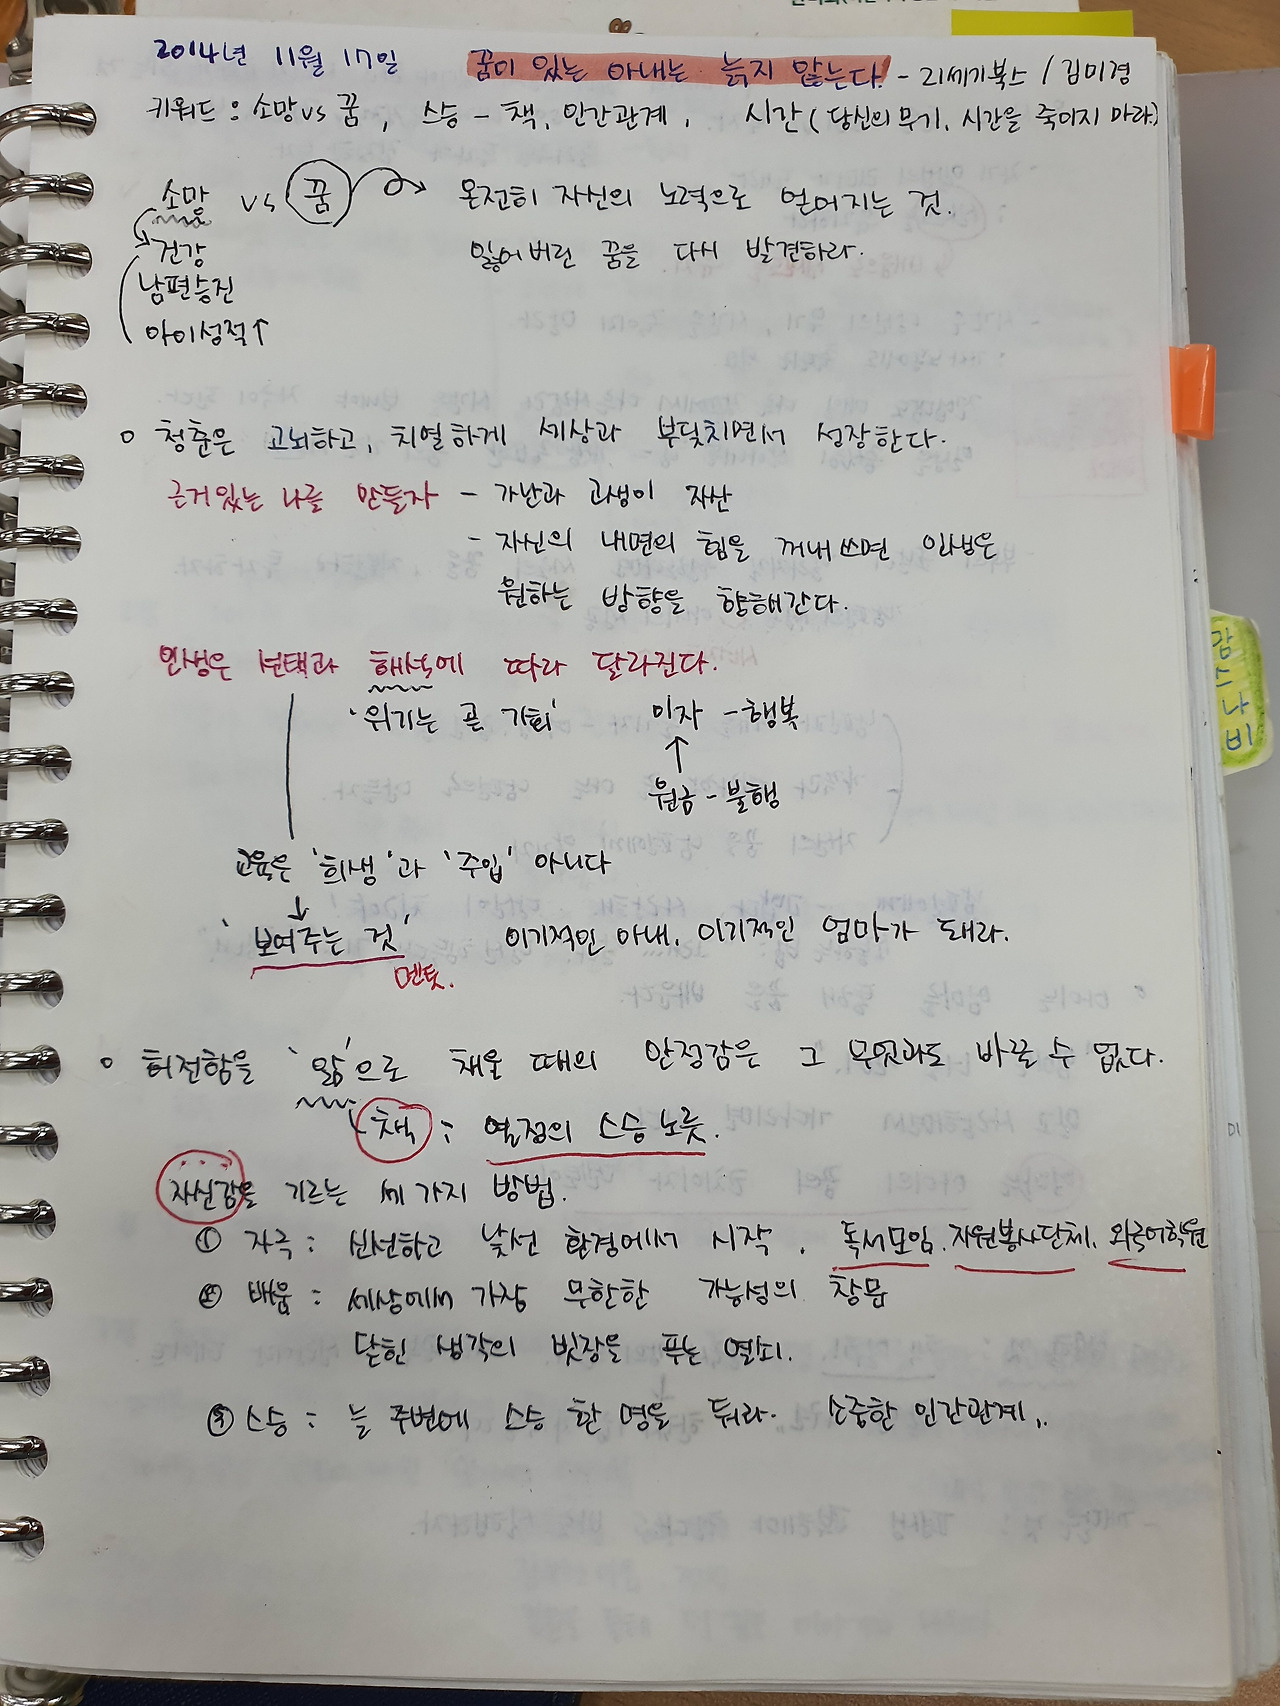 2014년 11월 17일 꿈이 있는 아내는 늙지 않는다. - 21세기북스 / 김미경
키워드 : 소망 vs 꿈, 스승 - 책, 인간관계, 시간 (당신의 무기, 시간을 죽이지 마라.)
소망 vs 꿈 → 온전히 자신의 노력으로 얻어지는 것.
건강 잃어버린 꿈을 다시 발견하라.
남편승진
아이성적↑
○ 청춘은 고뇌하고, 치열하게 세상과 부딪치면서 성장한다.
근거있는 나를 만들자 - 가난과 고생이 자산
- 자신의 내면의 힘을 꺼내쓰면 인생은
원하는 방향을 향해간다.
인생은 선택과 해석에 따라 달라진다.
'위기는 곧 기회' 이자 - 행복
↑
원금 - 불행
교육은 '희생'과 '주입' 아니다
↓
'보여주는 것' 이기적인 아내, 이기적인 엄마가 돼라.
멘토.
○ 허전함을 '앎'으로 채울 때의 안정감은 그 무엇과도 바꿀 수 없다.
책 : 열정의 스승 노릇.
자신감을 기르는 세 가지 방법.
① 자극 : 신선하고 낯선 환경에서 시작. 독서모임, 자원봉사단체, 외국어학원
② 배움 : 세상에서 가장 무한한 가능성의 창문
닫힌 생각의 빗장을 푸는 열쇠.
③ 스승 : 늘 주변에 스승 한 명을 둬라. 소중한 인간관계,.
감
스
나
비